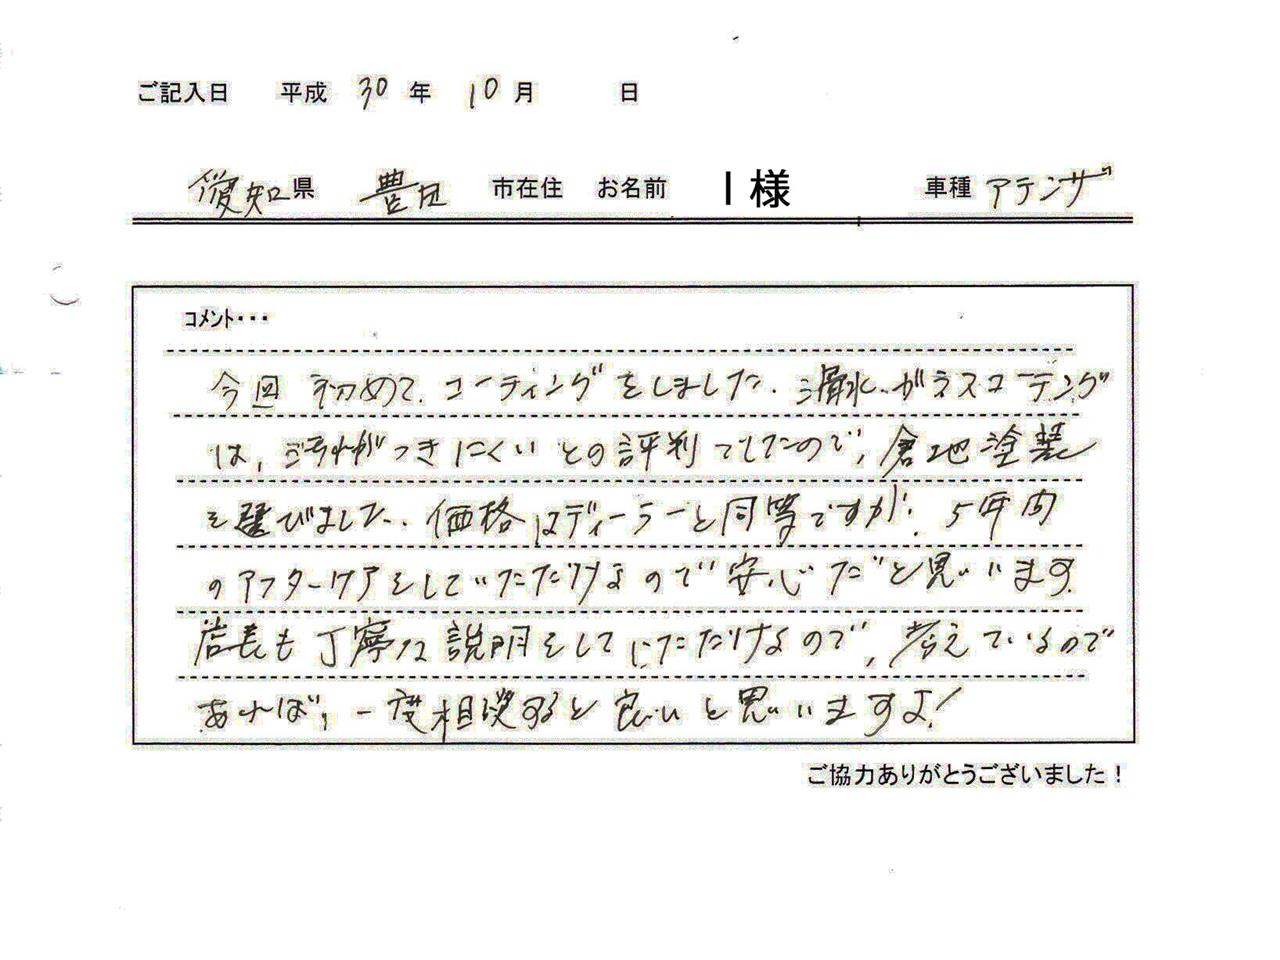 ご記入日 平成 30 年 10 月 日
愛知県 豊田 市在住 お名前 I 様 車種 アテンザ
コメント・・・
今回 初めて、コーティングをしました。滑水ガラスコーテング
は、汚れがつきにくいとの評判でしたので、倉地塗装
を選びました。価格はディーラーと同等ですが、5年間
のアフターケアをしていただけるので安心だと思います。
店長も丁寧な説明をしていただけるので、考えているので
あれば、一度相談すると良いと思いますよ!
ご協力ありがとうございました!